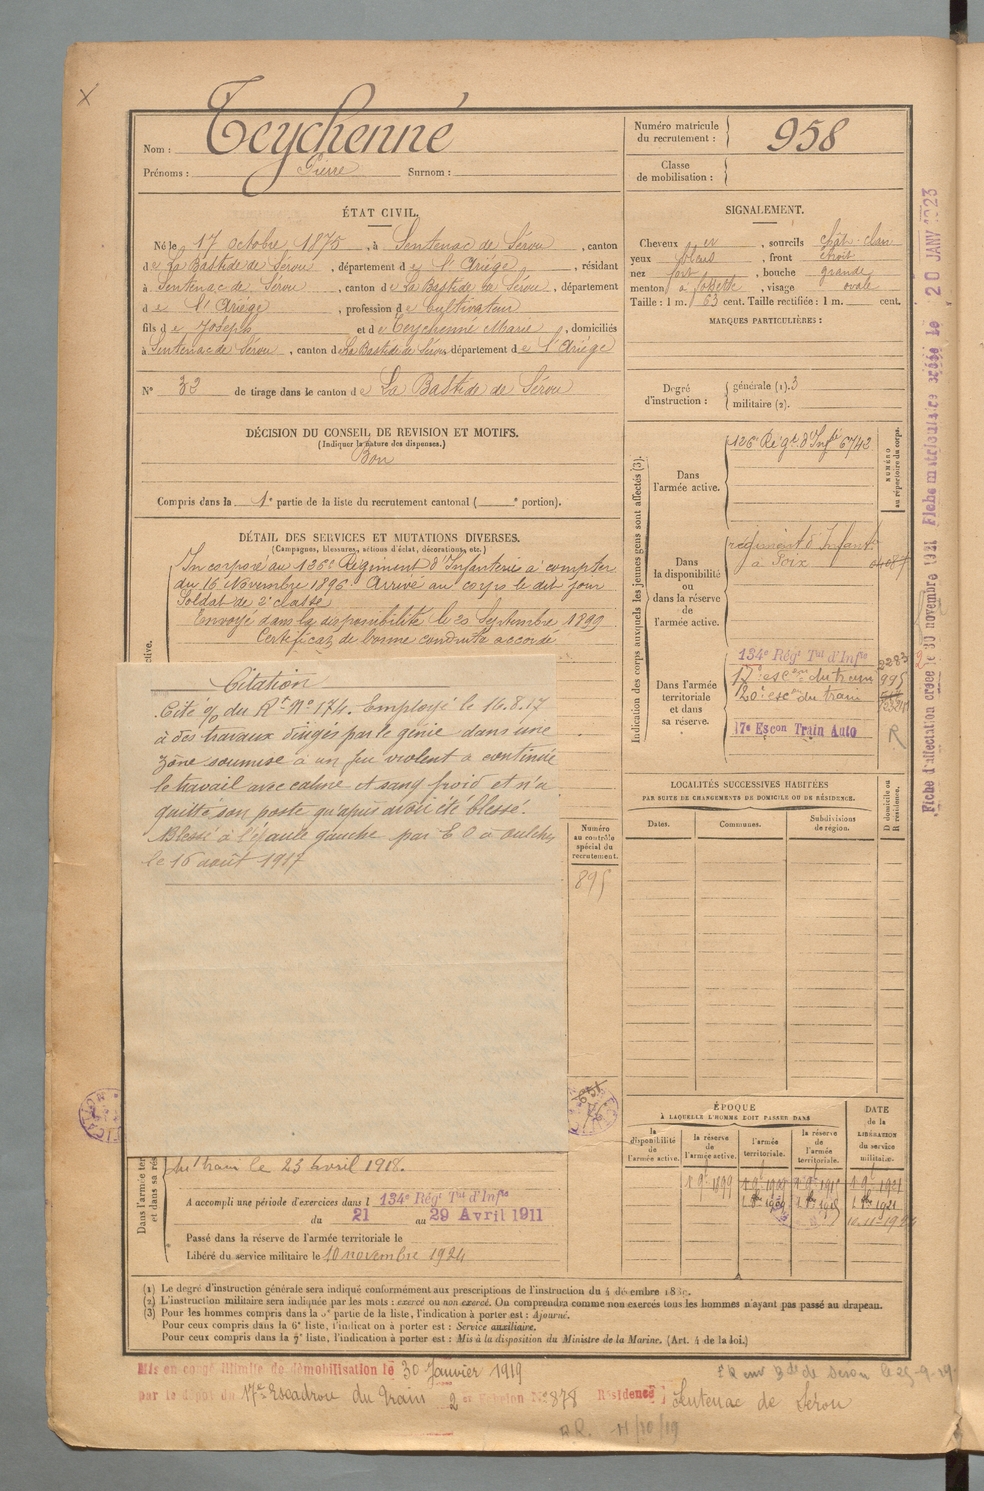 Nom : Teychenné
Prénoms : Pierre Surnom :
Numéro matricule du recrutement : 958
Classe de mobilisation :
ÉTAT CIVIL.
Né le 17 octobre 1875, à Sentenac de Sérou, canton
de La Bastide de Sérou, département de l'Ariège, résidant
à Sentenac de Sérou, canton de La Bastide de Sérou, département
de l'Ariège, profession de Cultivateur
fils de Joseph et de Teychenné Marie, domiciliés
à Sentenac de Sérou, canton de La Bastide de Sérou, département de l'Ariège
N° 33 de tirage dans le canton de La Bastide de Sérou
DÉCISION DU CONSEIL DE REVISION ET MOTIFS.
(Indiquer la nature des dispenses.)
Bon
Compris dans la 1e partie de la liste du recrutement cantonal ( e portion).
DÉTAIL DES SERVICES ET MUTATIONS DIVERSES.
(Campagnes, blessures, actions d'éclat, décorations, etc.)
Incorporé au 126e Régiment d'Infanterie à compter
du 16 Novembre 1896. Arrivé au corps le dit jour
Soldat de 2e classe
Envoyé dans la disponibilité le 20 Septembre 1899
Certificat de bonne conduite accordé
ctive.
Citation
Cité % du Rt N° 174. Employé le 16.8.17
à des travaux dirigés par le génie dans une
zone soumise à un feu violent a continué
le travail avec calme et sang froid et n'a
quitté son poste qu'après avoir été blessé.
Blessé à l'épaule gauche par E O à
le 16 août 1917
Numéro au contrôle spécial du recrutement.
895
Dans l'armée ter et dans sa rés
du train le 23 avril 1918.
A accompli une période d'exercices dans l 134e Régt Tal d'Infie
du 21 au 29 Avril 1911
Passé dans la réserve de l'armée territoriale le
Libéré du service militaire le 10 novembre 1924
SIGNALEMENT.
Cheveux, sourcils chât-clair
yeux, front étroit
nez fort, bouche grande
menton à fossette, visage ovale
Taille : 1 m. 63 cent. Taille rectifiée : 1 m. cent.
MARQUES PARTICULIÈRES :
Degré d'instruction : générale (1). 3
militaire (2).
Indication des corps auxquels les jeunes gens sont affectés (3).
NUMÉRO au répertoire du corps.
Dans l'armée active. 126e Régt d'Infie 6742
Dans la disponibilité ou dans la réserve de l'armée active. régiment d'Infant
à Foix
Dans l'armée territoriale et dans sa réserve. 134e Régt Tal d'Infie 2283
17e escon du train 995
20e escon du train
17e Escon Train Auto R
LOCALITÉS SUCCESSIVES HABITÉES
PAR SUITE DE CHANGEMENTS DE DOMICILE OU DE RÉSIDENCE.
Dates. Communes. Subdivisions de région. D domicile ou R résidence.
ÉPOQUE
À LAQUELLE L'HOMME DOIT PASSER DANS
la disponibilité de l'armée active. la réserve de l'armée active. l'armée territoriale. la réserve de l'armée territoriale. DATE de la LIBÉRATION du service militaire.
Fiche d'affectation créée le 30 novembre 1921 Fiche matriculaire créée le 20 JANV 1923
(1) Le degré d'instruction générale sera indiqué conformément aux prescriptions de l'instruction du 4 décembre 1889.
(2) L'instruction militaire sera indiquée par les mots : exercé ou non exercé. On comprendra comme non exercés tous les hommes n'ayant pas passé au drapeau.
(3) Pour les hommes compris dans la 5e partie de la liste, l'indication à porter est : Ajourné.
Pour ceux compris dans la 6e liste, l'indication à porter est : Service auxiliaire.
Pour ceux compris dans la 7e liste, l'indication à porter est : Mis à la disposition du Ministre de la Marine. (Art. 4 de la loi.)
Mis en congé illimité de démobilisation le 30 Janvier 1919
par le dépôt du 17e Escadron du Train 2e Echelon N° 878 Résidence : Sentenac de Sérou
de Serou le 25-9-19
P.R. 11/10/19